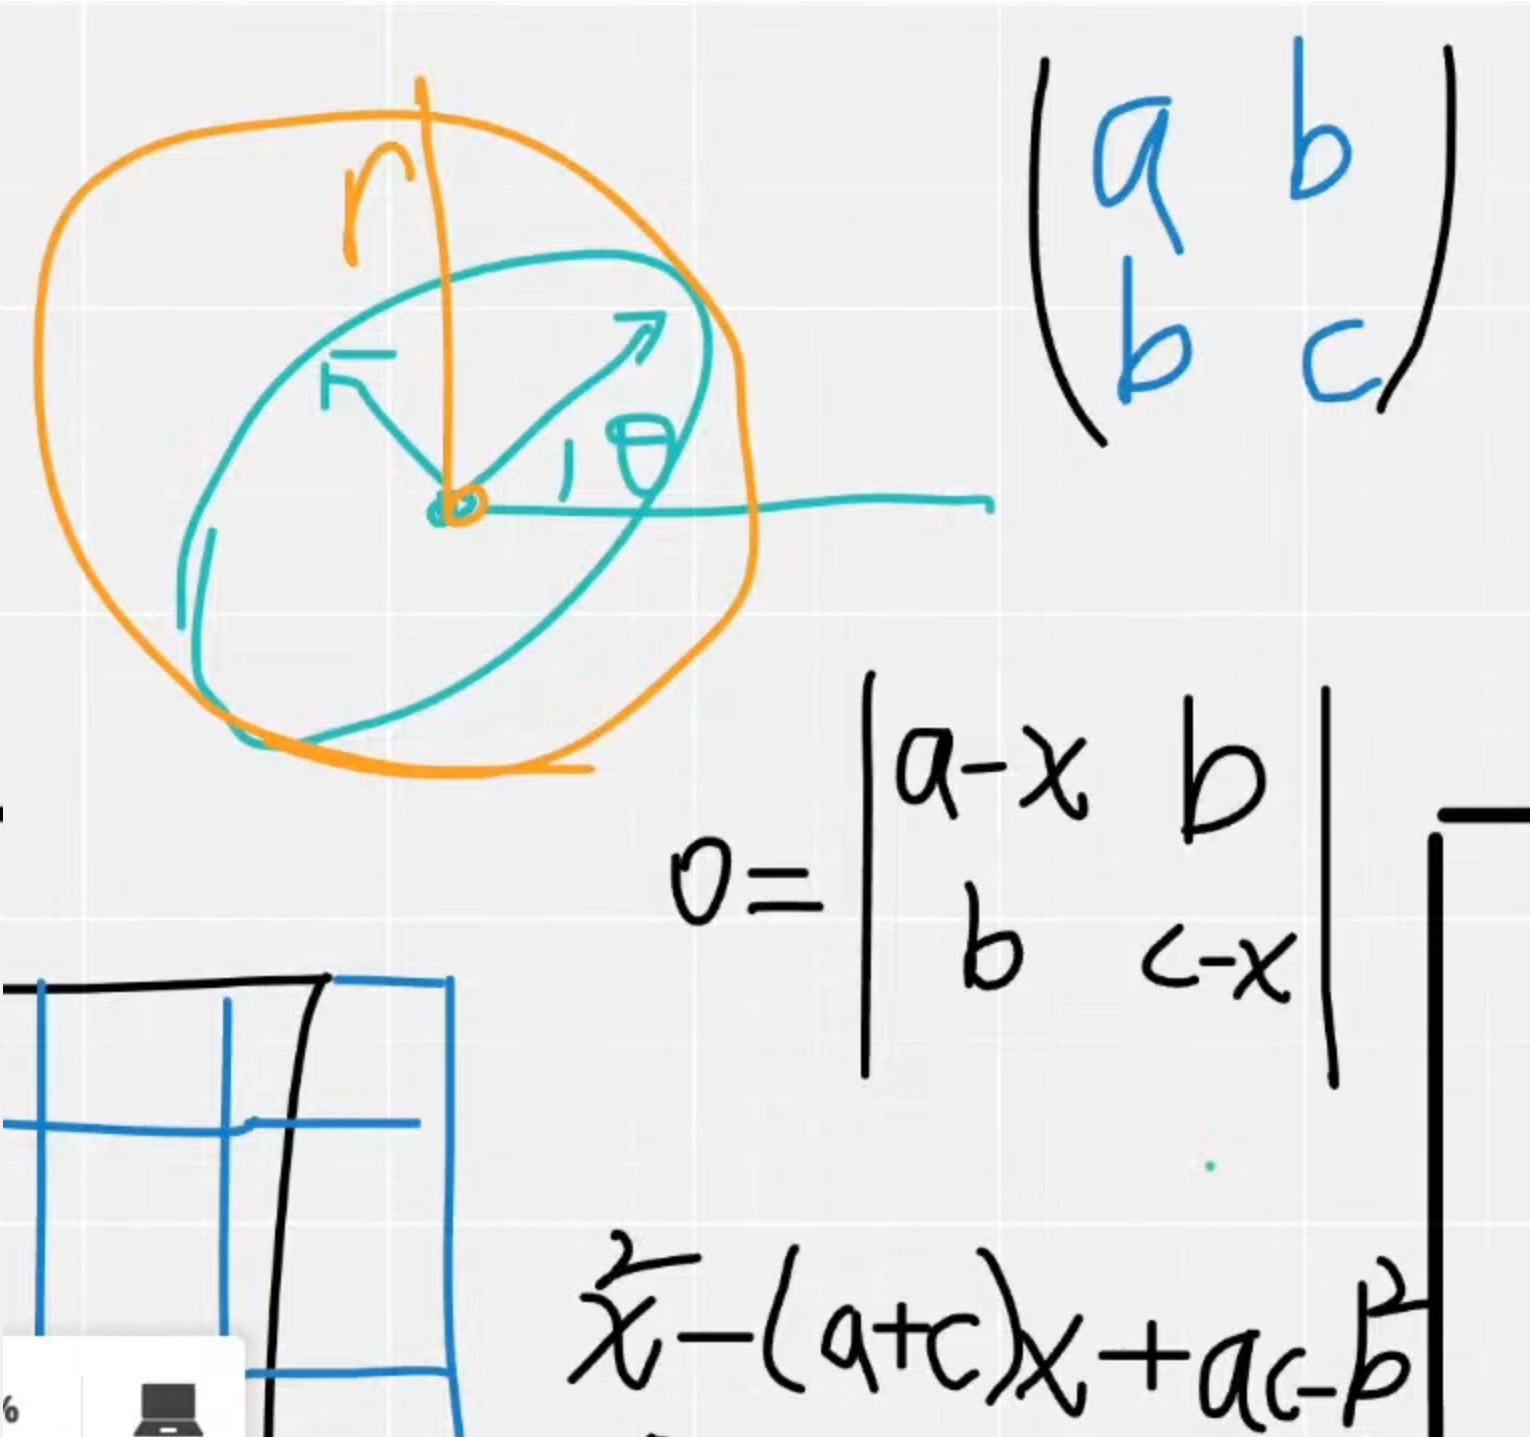 r
θ
( a b
b c )
0 = | a-x b
b c-x |
x² - (a+c)x + ac-b²
%